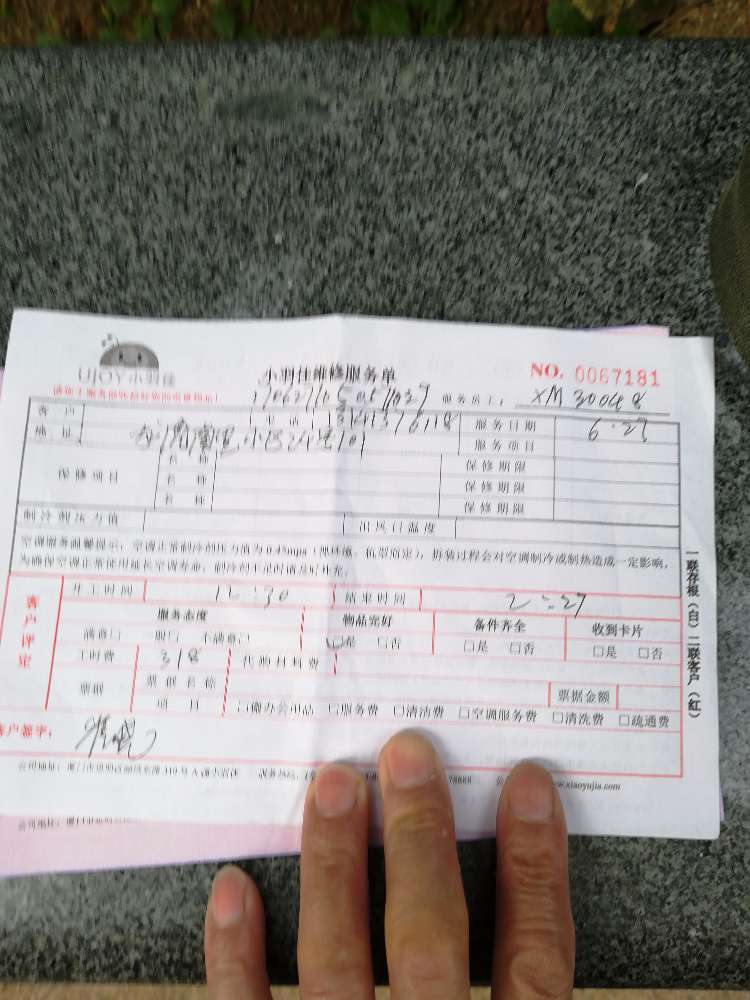 UJOY小羽佳
小羽佳维修服务单
NO. 0067181
服务员工: XM30048
客户
电话
服务日期 6.27
地址
服务项目
保修项目
名称
保修期限
名称
保修期限
名称
保修期限
制冷剂压力值
出风口温度
空调服务温馨提示：空调正常制冷剂压力值为0.45mpa（视环境、机型而定），拆装过程会对空调制冷或制热造成一定影响，
为确保空调正常使用延长空调寿命，制冷剂不足时请及时补充。
开工时间 12:30 结束时间 2:27
客户评定
服务态度 物品完好 备件齐全 收到卡片
满意□ 一般□ 不满意□ □是 □否 □是 □否 □是 □否
工时费 318 代购材料费
票据 票据名称 票据金额
项目 □搬办公用品 □服务费 □清洁费 □空调服务费 □清洗费 □疏通费
客户签字:
一联存根（白）二联客户（红）
www.xiaoyujia.com